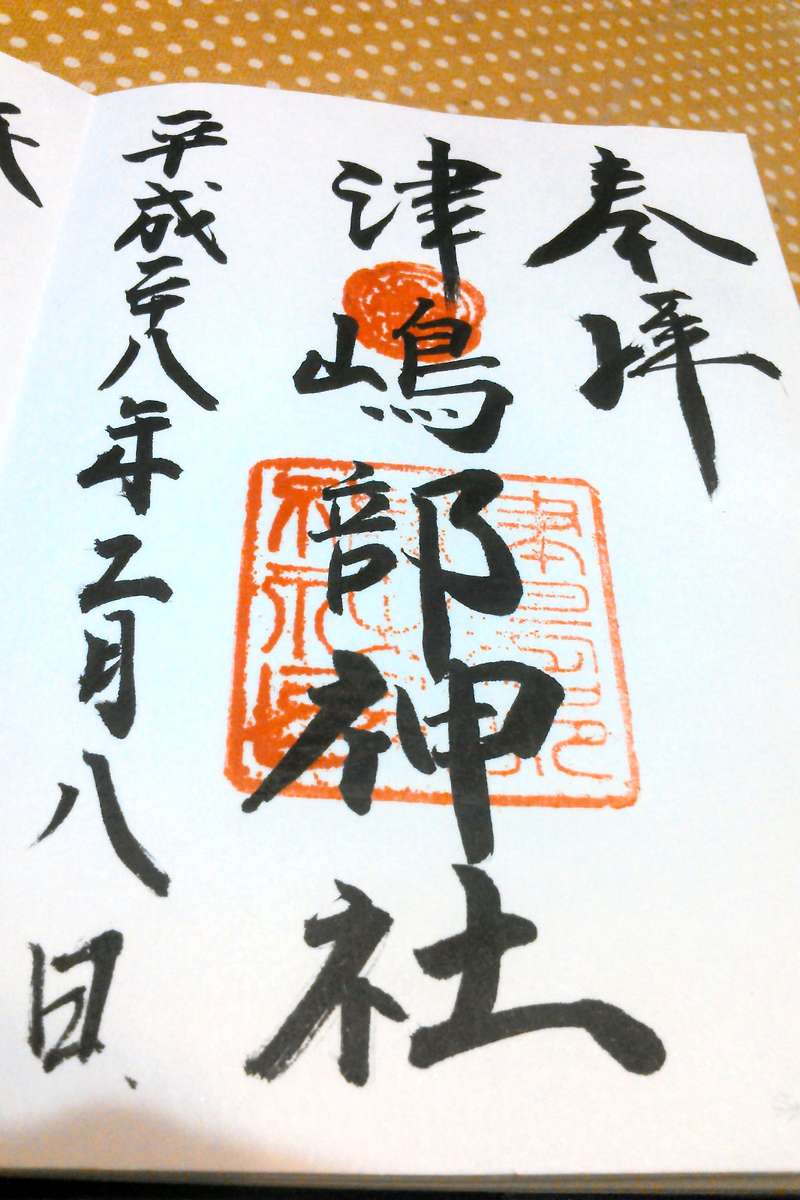 奉拝
津嶋部神社
平成二十八年五月八日